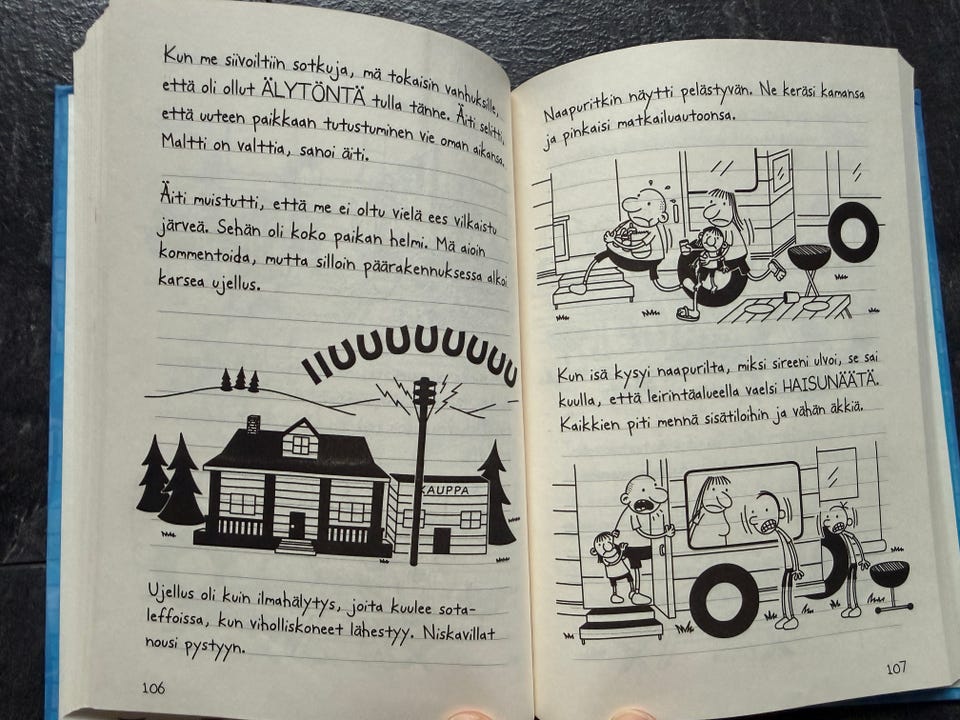 Kun me siivoiltiin sotkuja, mä tokaisin vanhuksille,
että oli ollut ÄLYTÖNTÄ tulla tänne. Äiti selitti,
että uuteen paikkaan tutustuminen vie oman aikansa.
Maltti on valttia, sanoi äiti.
Äiti muistutti, että me ei oltu vielä ees vilkaistu
järveä. Sehän oli koko paikan helmi. Mä aioin
kommentoida, mutta silloin päärakennuksessa alkoi
karsea ujellus.
IIUUUUUUUU
KAUPPA
Ujellus oli kuin ilmahälytys, joita kuulee sota-
leffoissa, kun viholliskoneet lähestyy. Niskavillat
nousi pystyyn.
106
Naapuritkin näytti pelästyvän. Ne keräsi kamansa
ja pinkaisi matkailuautoonsa.
Kun isä kysyi naapurilta, miksi sireeni ulvoi, se sai
kuulla, että leirintäalueella vaelsi HAISUNÄÄTÄ.
Kaikkien piti mennä sisätiloihin ja vähän äkkiä.
107